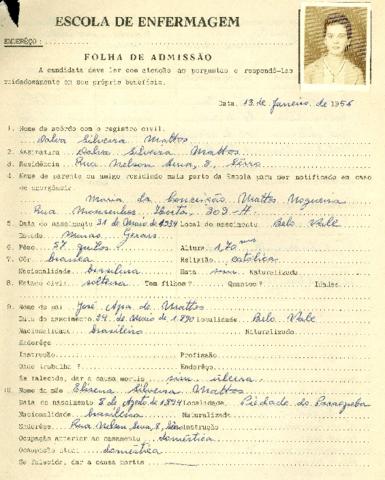 ESCOLA DE ENFERMAGEM
ENDERÊÇO:
FOLHA DE ADMISSÃO
A candidata deve ler com atenção as perguntas e respondê-las
cuidadosamente em seu próprio benefício.
Data, 13 de Janeiro, de 1956
1. Nome de acôrdo com o registro civil.
Dalva Silveira Mattos
2. Assinatura Dalva Silveira Mattos
3. Residência Rua Nelson 8, Serro
4. Nome de parente ou amigo residindo mais perto da Escola para ser notificado em caso
de emergência
Maria da Conceição Mattos Nogueira
Rua Monsenhor Horta, 303-A.
5. Data do nascimento 31 de 1934 Local do nascimento Belo Vale
Estado Minas Gerais
6. Pêso 57 quilos Altura 1,70
7. Côr branca Religião católica
Nacionalidade brasileira Data Naturalizado
8. Estado civil solteira Tem filhos? Quantos? Idades
9. Nome do pai José de Mattos
Data do nascimento 24 de de 1890 localidade Belo Vale
Nacionalidade brasileiro Naturalizado
Enderêço
Instrução Profissão
Onde trabalha? Enderêço
Se falecido, dar a causa mortis sim, úlcera
10. Nome da mãe Silveira Mattos
Data do nascimento 8 de Agosto de 1894 Localidade Piedade do Paraopeba
Nacionalidade brasileira Naturalizado
Enderêço Rua Nelson 8, Instrução
Ocupação anterior ao casamento doméstica
Ocupação atual doméstica
Se falecido, dar a causa mortis